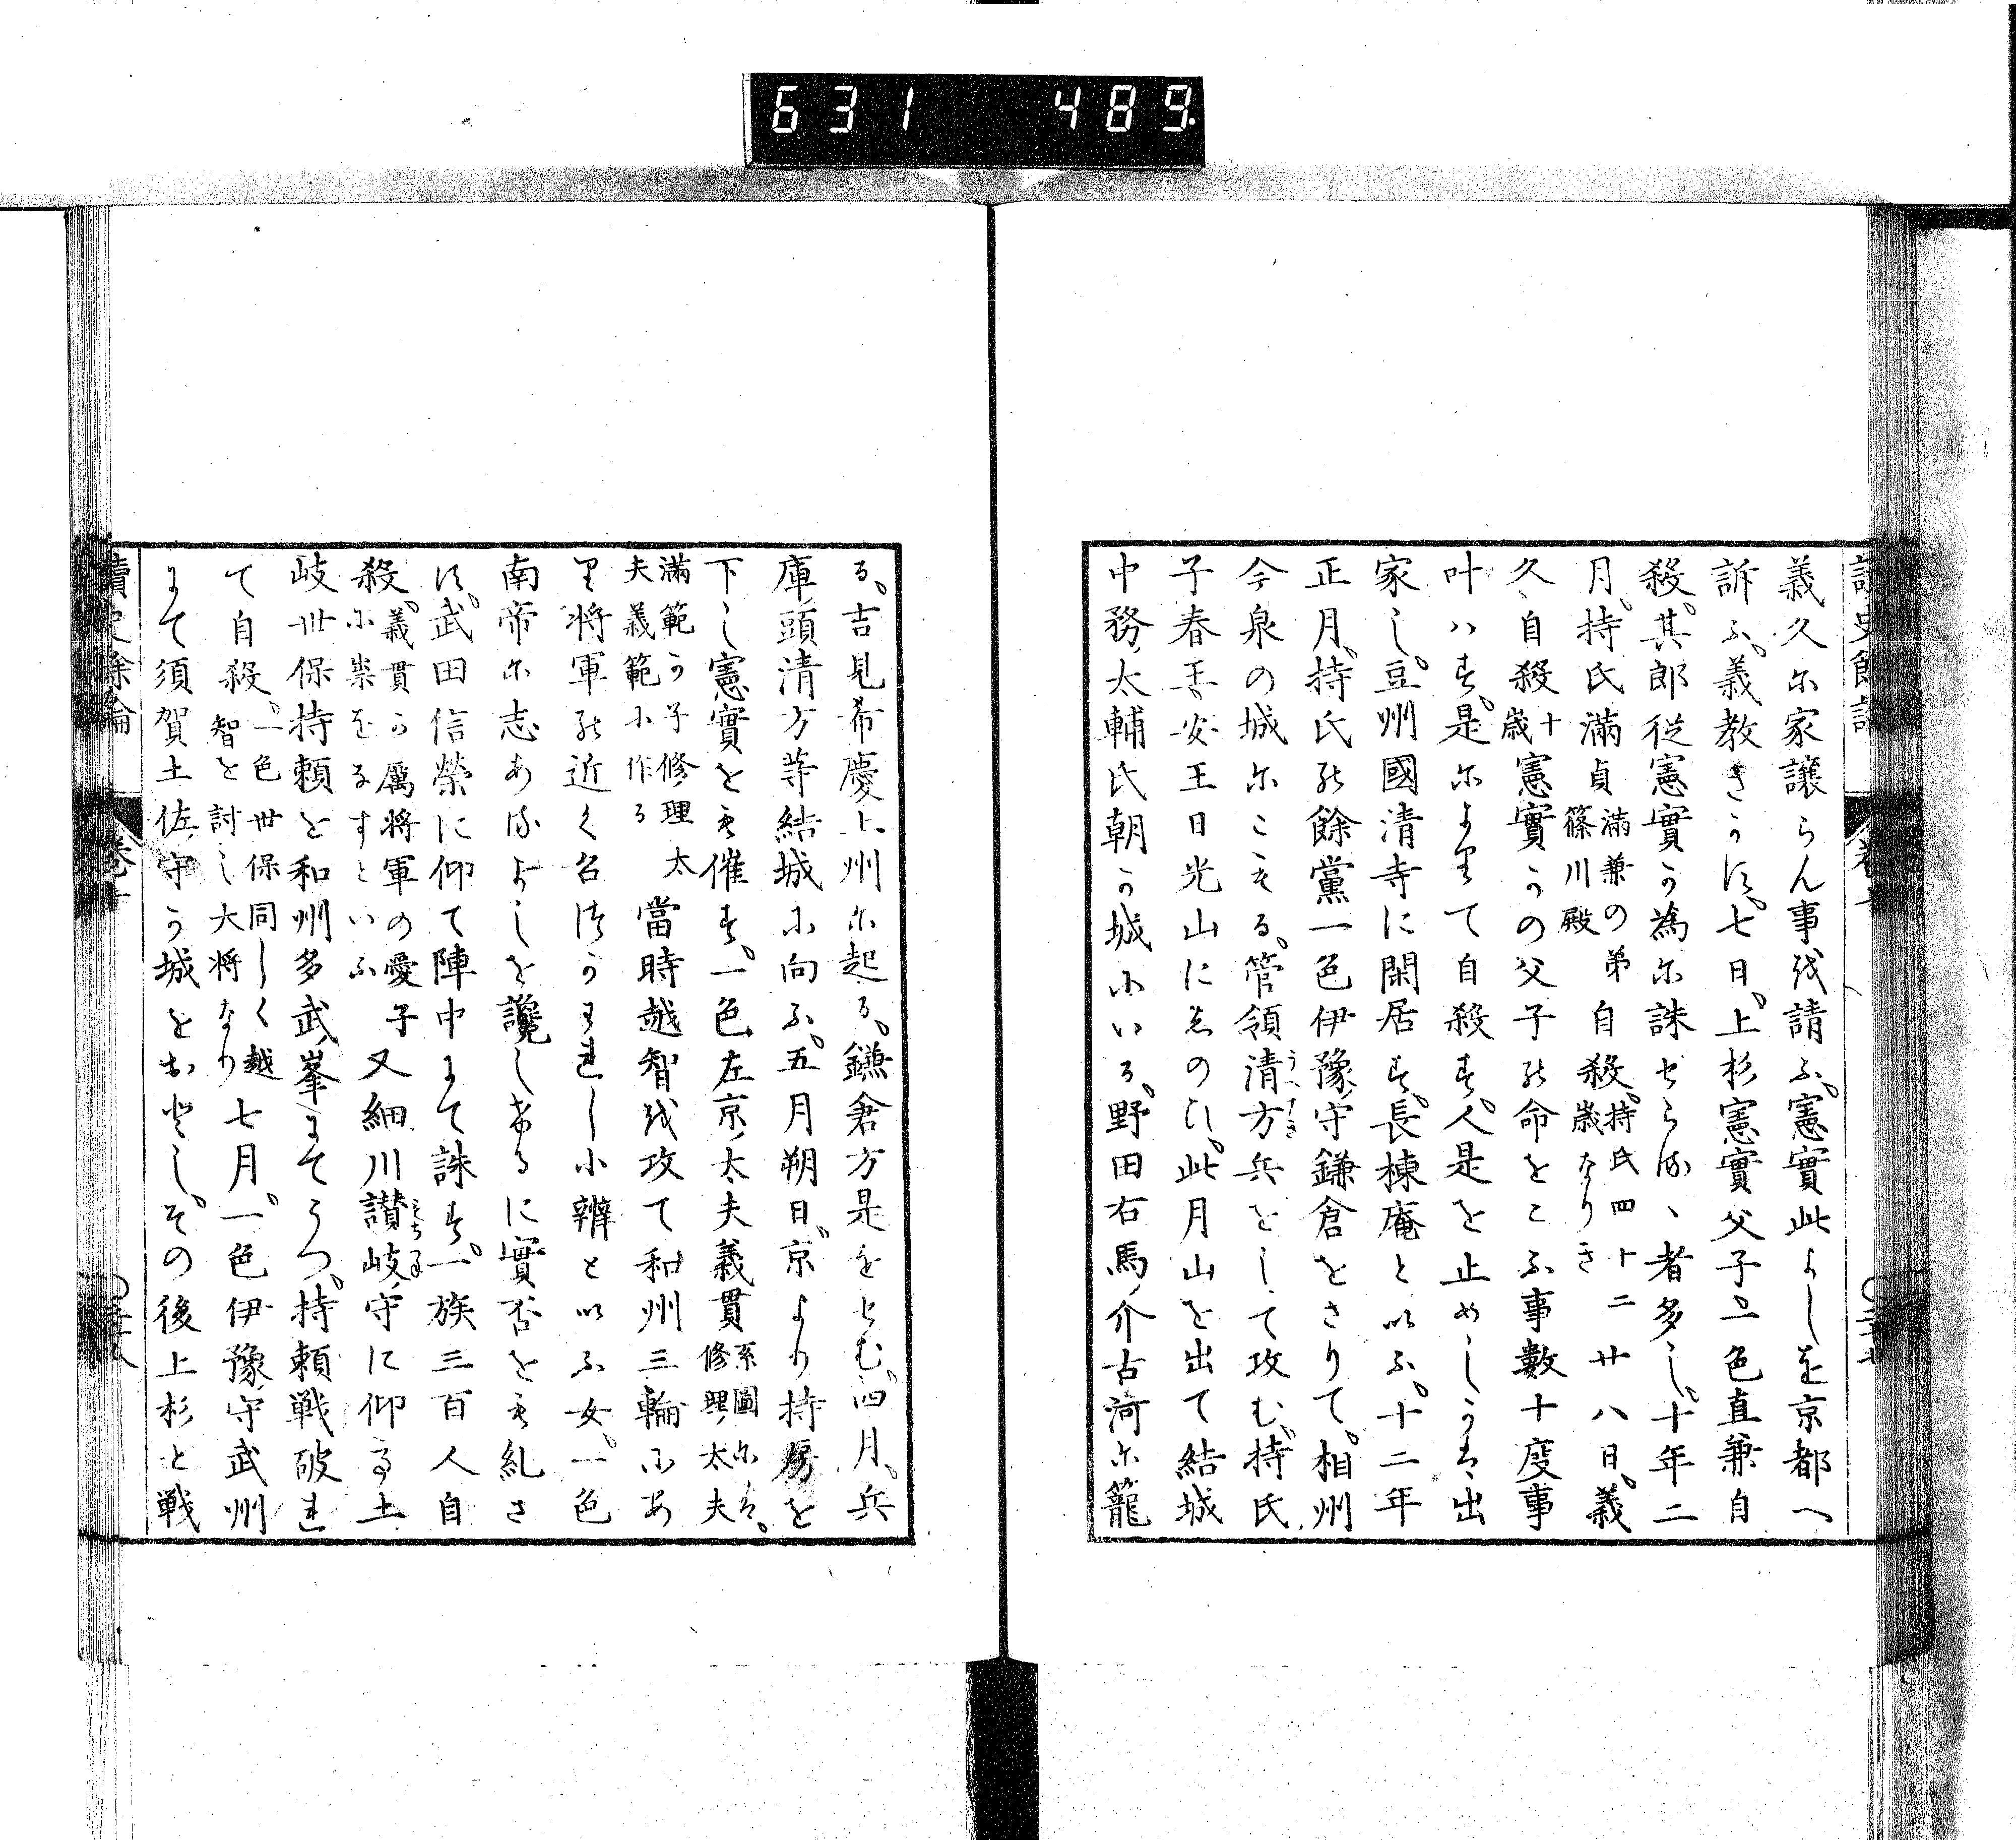 631 489
義久尓家譲らん事越請ふ。憲實此よしを京都へ
訴ふ。義教きうに。七日。上杉憲實父子一色直兼自
殺。其郎従憲實可為尓誅せらる、者多し。十年二
月。持氏満貞満兼の弟篠川殿自殺。持氏四十二歳なりき廿八日。義
久自殺十歳憲實うの父子能命をこふ事數十度事
叶ハす。是尓より て自殺す。人是を止めしうは出
家し。豆州國清寺に閑居す。長棟庵と以ふ。十二年
正月。持氏能餘黨一色伊豫守鎌倉をさりて。相州
今泉の城尓こもる。管領清方兵をして攻む。持氏
子春王安王日光山にしのひ。此月山を出て結城
中務太輔氏朝可城小いる。野田右馬介古河尓籠
る。吉見希慶上州尓起る。鎌倉方是をせむ。四月。兵
庫頭清方等結城小向ふ。五月朔日。京より持房を
下し憲實をも催す。一色左京太夫義貫系圖尓ハ。修理太夫
満範可子修理太夫義範小作る當時越智越攻て和州三輪小あ
り将軍能近く召つかわれし小辨と以ふ女。一色
南帝尓志あるよしを讒しけるに實否をも糺さ
に。武田信榮に仰て陣中にて誅す。一族三百人自
殺。義貫可属将軍の愛子小祟をなすといふ又細川讃岐守に仰る土
岐世保持頼を和州多武峯にてうつ。持頼戦破れ
て自殺。一色世保同しく越智を討し大将なり七月。一色伊豫守武州
にて須賀土佐守可城をおとし。その後上杉と戦